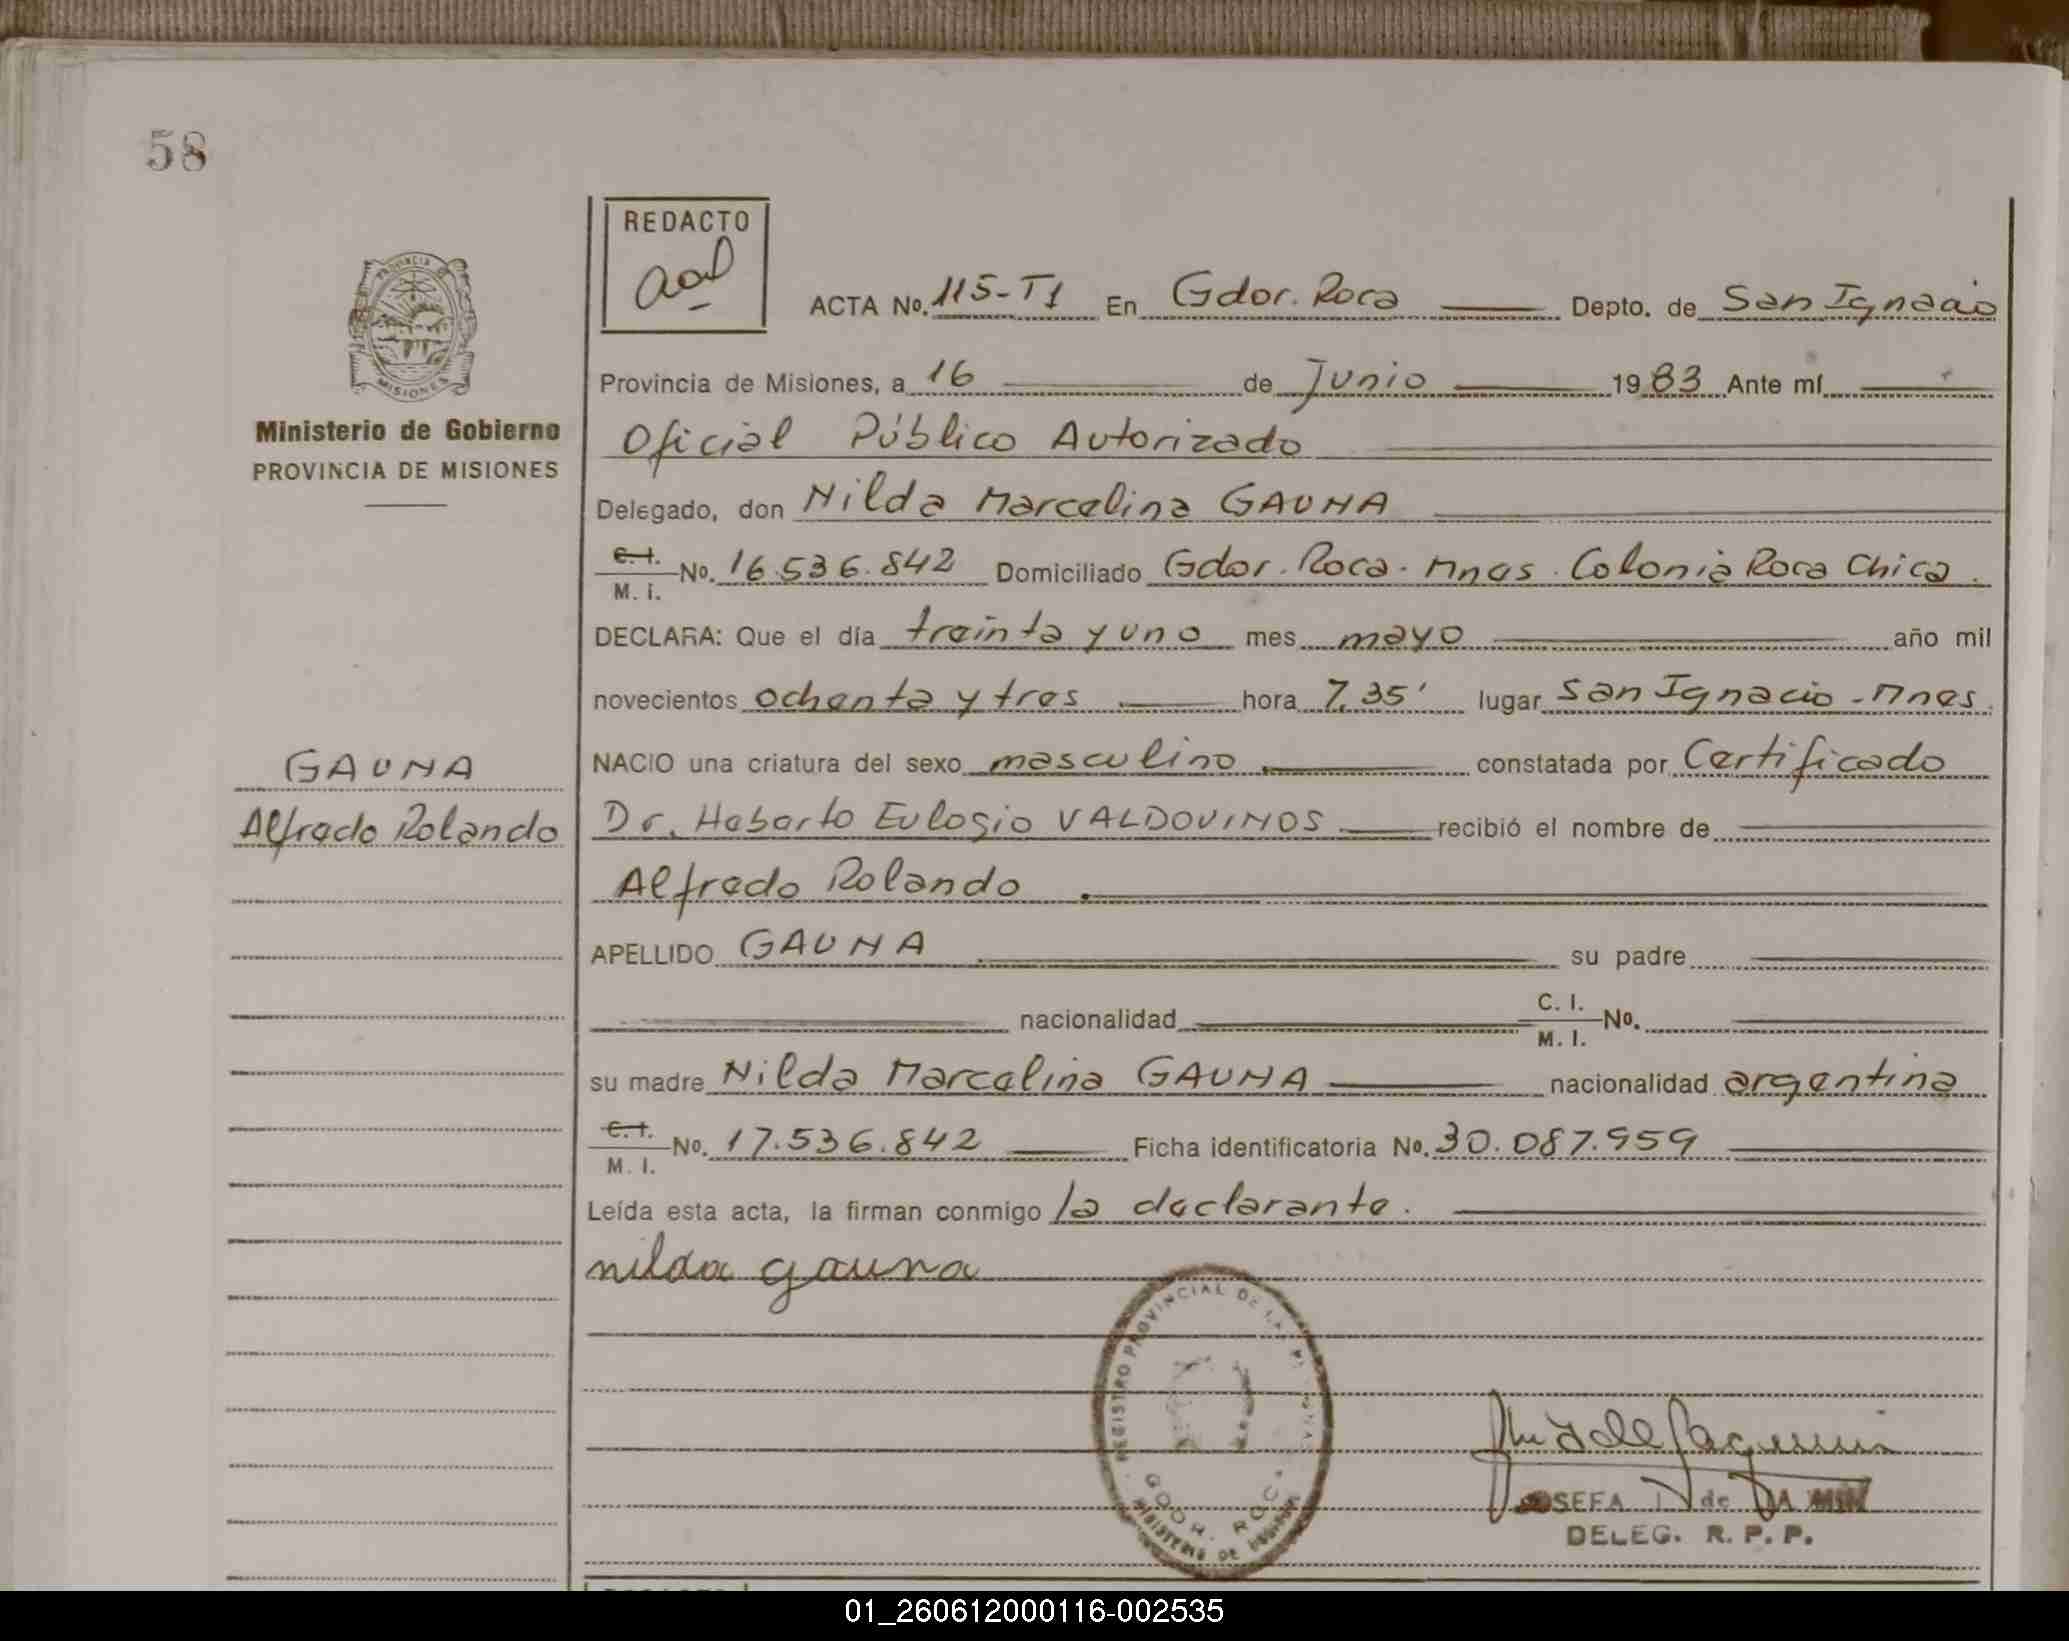 58
REDACTO
PROVINCIA
MISIONES
Ministerio de Gobierno
PROVINCIA DE MISIONES
ACTA No. 115-T1 En Gdor. Roca Depto. de San Ignacio
Provincia de Misiones, a 16 de Junio 1983 Ante mí
Oficial Público Autorizado
Delegado, don Nilda Marcelina GAUNA
C.I. M. I. No. 16.536.842 Domiciliado Gdor. Roca. Mnes. Colonia Roca Chica.
DECLARA: Que el día treinta y uno mes mayo año mil
novecientos ochenta y tres hora 7.35' lugar San Ignacio - Mnes.
GAUNA
Alfredo Rolando
NACIO una criatura del sexo masculino constatada por Certificado
Dr. Heberto Eulogio VALDOVINOS recibió el nombre de
Alfredo Rolando
APELLIDO GAUNA su padre
nacionalidad C. I. M. I. No.
su madre Nilda Marcelina GAUNA nacionalidad argentina
C.I. M. I. No. 17.536.842 Ficha identificatoria No. 30.087.959
Leída esta acta, la firman conmigo la declarante.
nilda gauna
REGISTRO PROVINCIAL DE LAS
GDOR. ROCA
MINISTERIO DE
DELEG. R. P. P.
01_260612000116-002535